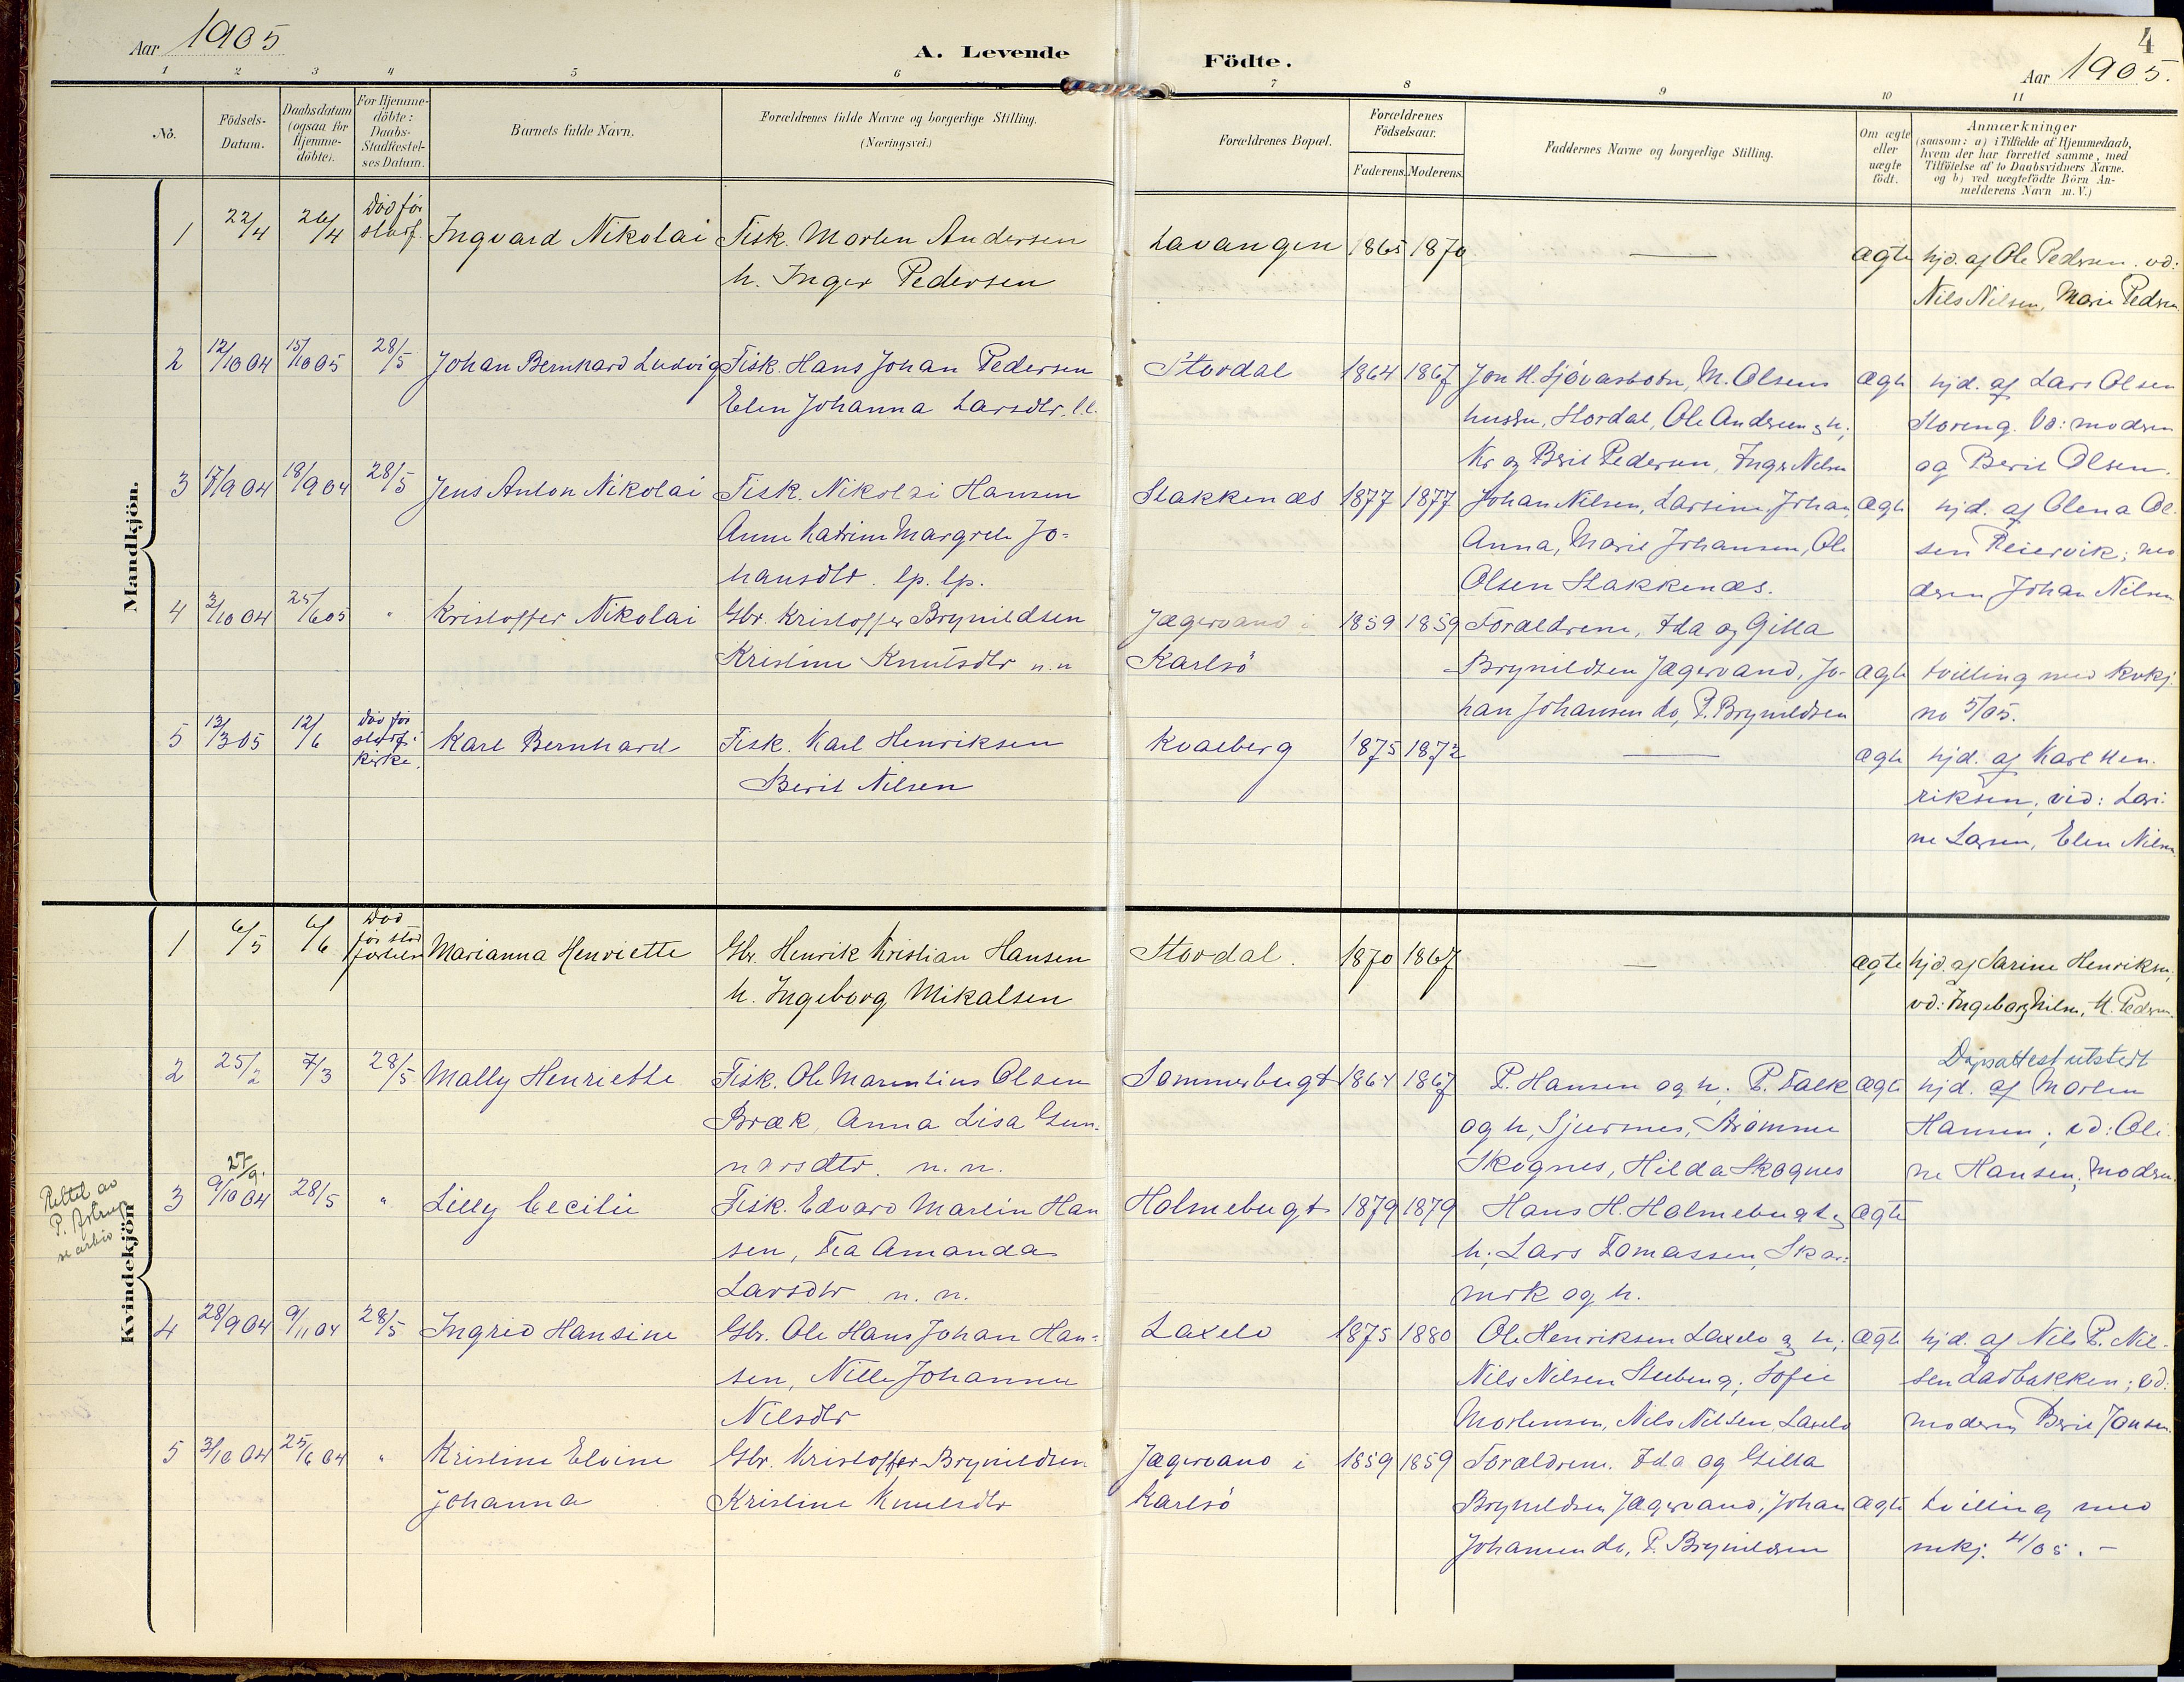 Aar 1905
A. Levende
Födte.
4
Aar 1905.
1 2 3 4 5 6 7 8 9 10 11
No.
Födsels-Datum.
Daabsdatum (ogsaa for Hjemme-döbte).
For Hjemme-döbte: Daabs-Stadfæstel-ses Datum.
Barnets fulde Navn.
Forældrenes fulde Navne og borgerlige Stilling.
(Næringsvei.)
Forældrenes Bopæl.
Forældrenes Födselsaar.
Faderens. Moderens.
Faddernes Navne og borgerlige Stilling.
Om ægte eller uægte födt.
Anmærkninger
(saasom: a) i Tilfælde af Hjemmedaab,
hvem der har forrettet samme, med
Tilföielse af to Daabsvidners Navne.
og b) ved uægtefödte Börn An-
melderens Navn m. V.)
Mandkjön.
1 22/4 26/4 Död för stadf. Ingvard Nikolai Fisk. Morten Andersen Lavangen 1865 1870 — ægte hjd. af Ole Pedersen. vd:
h. Inger Pedersen Nils Nilsen, Marie Pedrsen
2 12/10 04 15/10 05 28/5 Johan Bernhard Ludvig Fisk. Hans Johan Pedersen Stordal 1864 1867 Jon H. Sjövasbotn, M. Olsens ægte hjd. af Lars Olsen
Elen Johanna Larsdtr. l.l. hustru, Stordal, Ole Andersen og h; Storeng. Vd: modren
Kr og Berit Pedersen, Inger Nilsen og Berit Olsen.
3 17/9 04 18/9 04 28/5 Jens Anton Nikolai Fisk. Nikolai Hansen Stakkenæs 1877 1877 Johan Nilsen, Larsine, Johan, ægte hjd. af Olena Ol-
Anne Katrine Margrete Jo- Anna, Marie Johansen, Ole sen Reiervik;
hansdtr. lp. lp. Olsen Stakkenæs. Johan Nilsen
4 3/10 04 25/6 05 " Kristoffer Nikolai Gbr. Kristoffer Brynildsen Jægervand i 1859 1859 Forældrene, Ida og Gitta
Kristine Knutsdtr n.n Karlsö Brynildsen Jægervand, Jo- ægte tvilling med kvkj.
han Johansen do, P. Brynildsen no 5/05.
5 13/3 05 12/6 död för stadf. i kirke. Karl Bernhard Fisk. Karl Henriksen Kvalberg 1875 1872 — ægte hjd. af Karl Hen-
Berit Nilsen riksen, vid: Lari-
ne Larsen, Elen Nilsen
Kvindekjön
1 6/5 6/6 Död för stad Marianna Henriette Gbr. Henrik Kristian Hansen Stordal. 1870 1867 — ægte hjd. af Sarine Henriksen,
h. Ingeborg Mikalsen vd: Ingeborg Nilsen, M. Pedersen.
Dåpsattest utstedt
2 25/2 7/3 28/5 Mally Henriette Fisk. Ole Marentius Olsen Sommerbugt 1864 1867 P. Hansen og h, P. Falk ægte hjd. af Morten
Bræk, Anna Lisa Gun- og h, Sjursnes, Hansen; vd: Oli-
narsdtr. n.n. Skognes, Hilda Skognes ne Hansen, modren
Rettet av P.
27/9.
3 9/10 04 28/5 " Lilly Cecilie Fisk. Edvard Martin Han Holmebugt 1879 1879 Hans H. Holmebugt og ægte
sen, Tea Amanda h; Lars Tomassen, Skar-
Larsdtr n.n. merk og h.
4 28/9 04 9/11 04 28/5 Ingrid Hansine Gbr. Ole Hans Johan Han- Laxelv 1875 1880 Ole Henriksen Laxelv og h; ægte hjd. af Nils P. Nil-
sen, Nille Johanne Nils Nilsen Steberg; Sofie sen Ladbakken; vd:
Nilsdtr Mortensen, Nils Nilsen Laxelv modren, Berit Jonsen.
5 3/10 04 25/6 04 " Kristine Elvine Gbr. Kristoffer Brynildsen Jægervand i 1859 1859 Forældrene. Ida og Gitta
Johanna Kristine Knutsdtr Karlsö Brynildsen Jægervand, Johan ægte tvilling med
Johansen do, P. Brynildsen mkj. 4/05. -